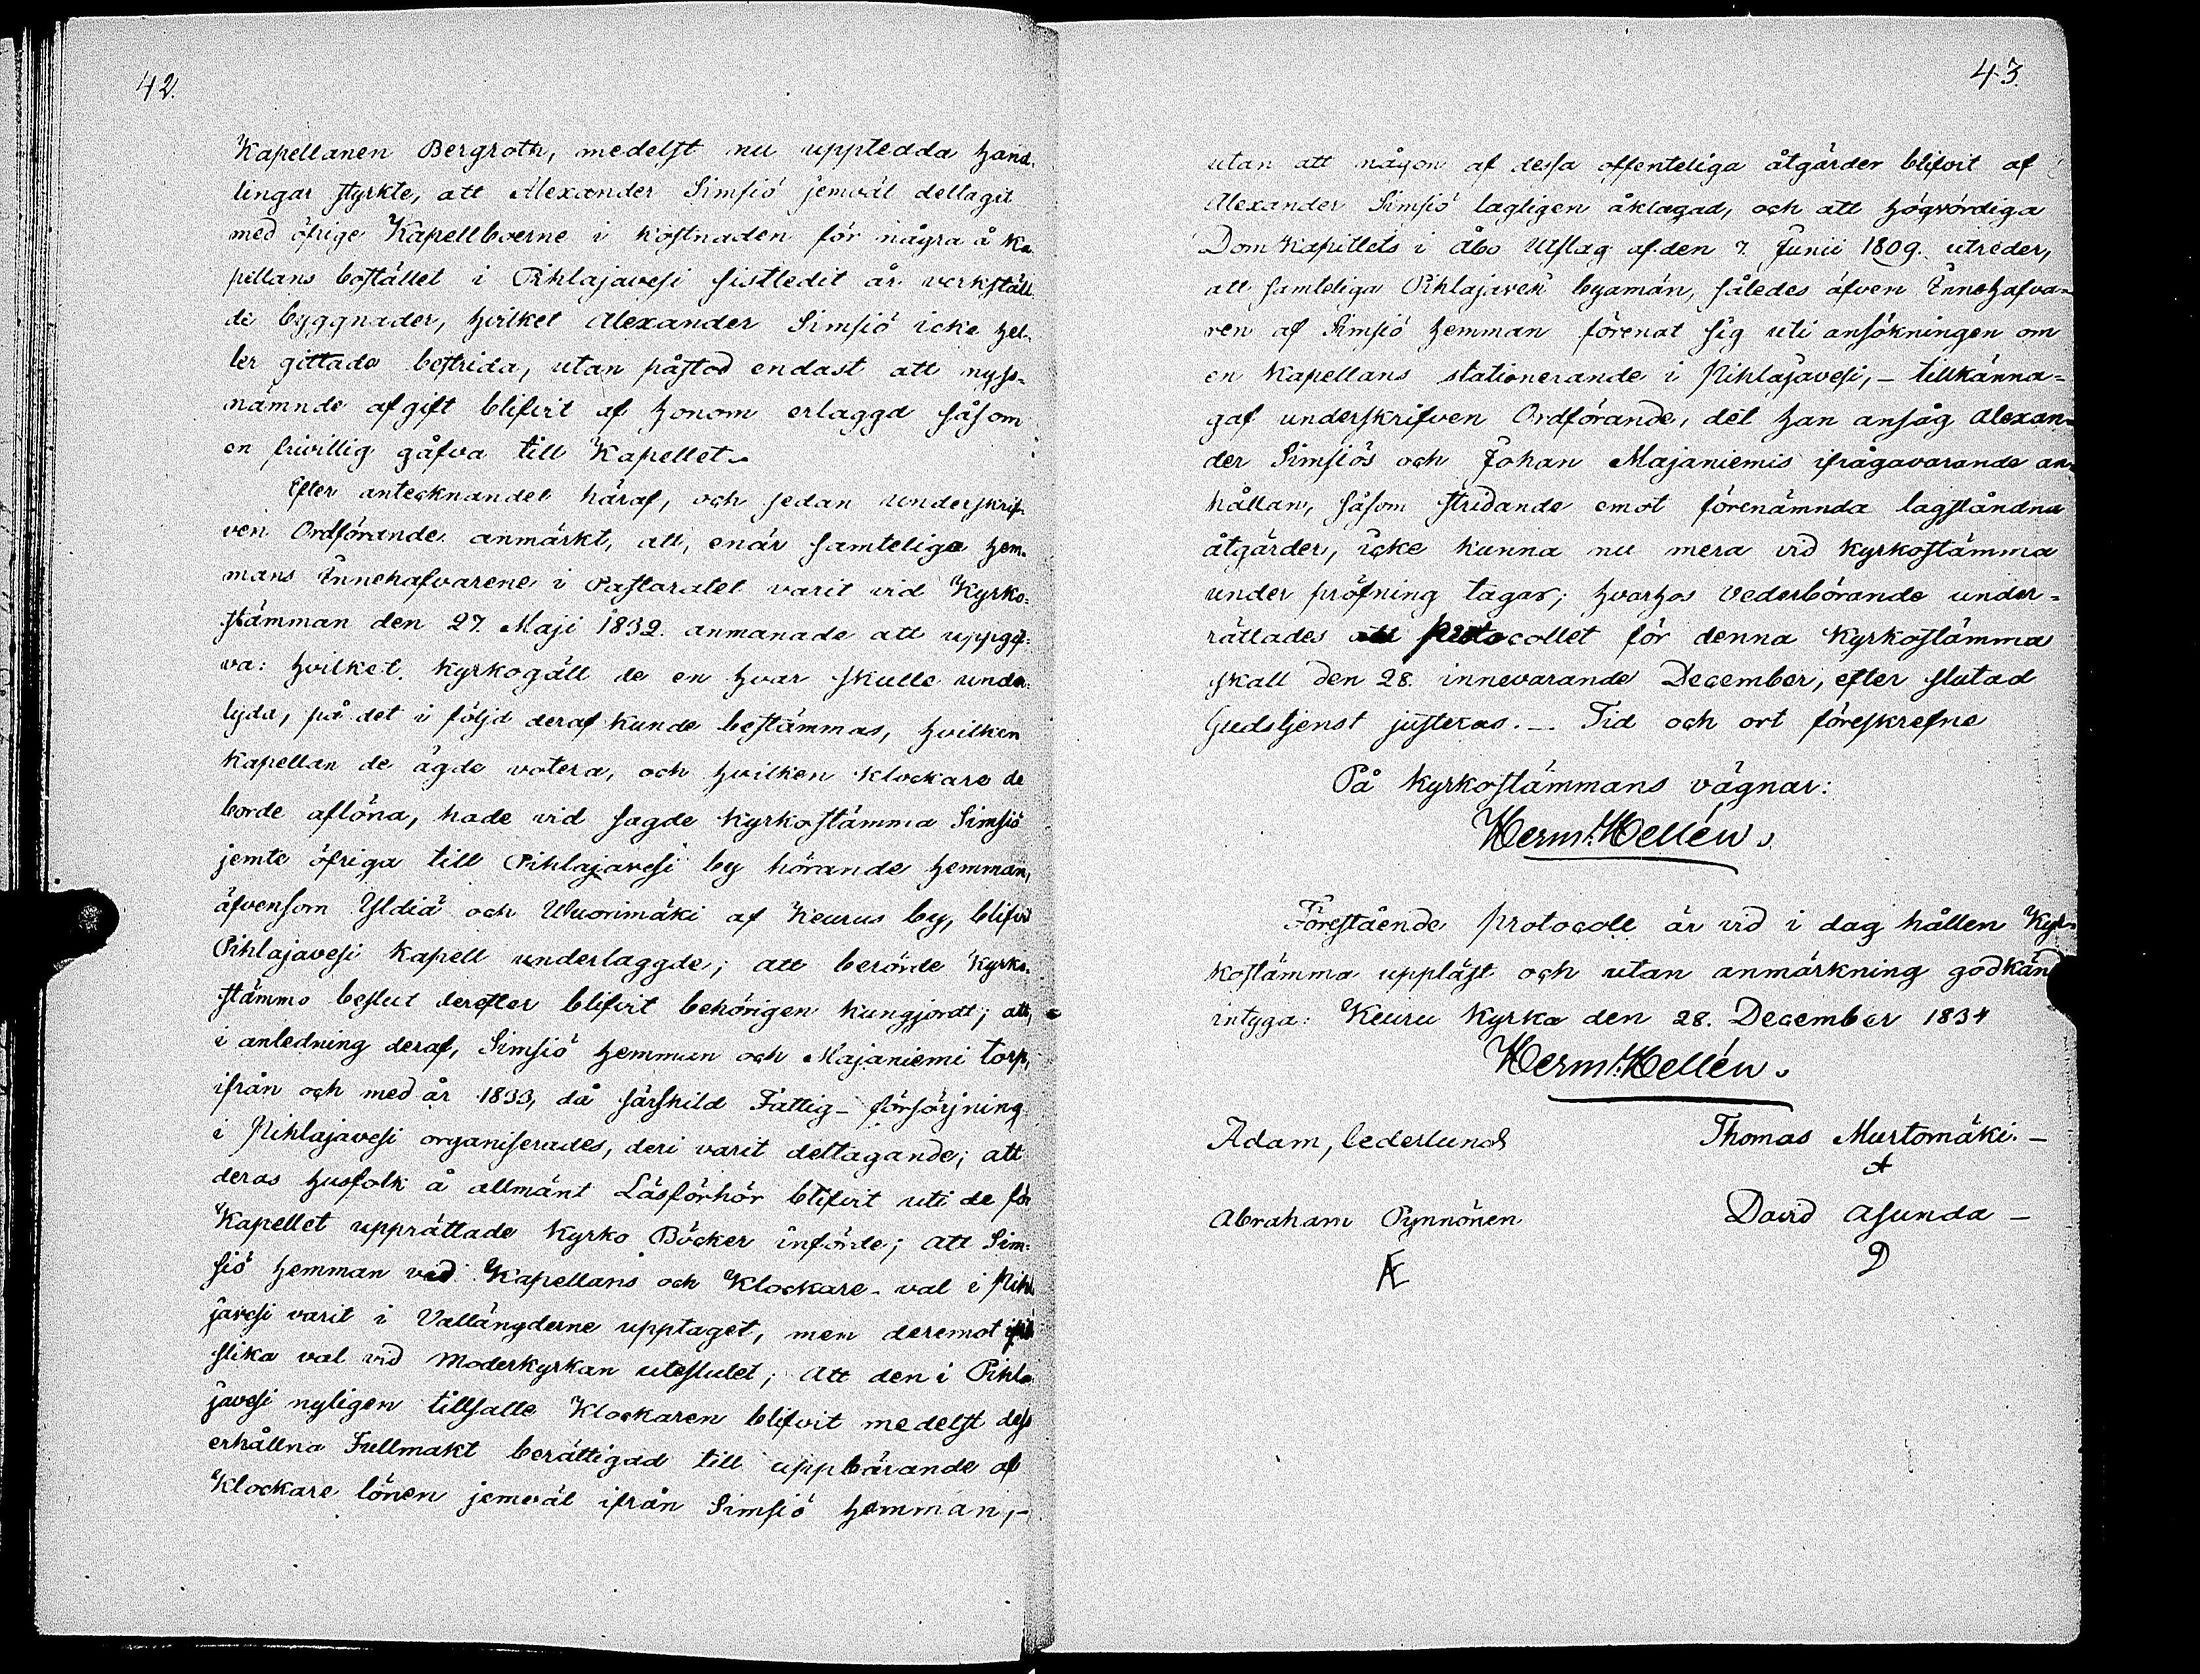 42.
Kapellanen Bergroth, medelst nu upptedda hand-
lingar styrkte, att Alexander Simsiö jemväl deltagit
med öfrige Kapellboerne i kostnaden för några å Ka
pellans bostället i Pihlajavesi sistledit år verkställ
de byggnader, hvilket Alexander Simsiö icke hel-
ler gittade bestrida, utan påstod endast att nyss-
nämnde afgift blifvit af honom erlaggd såsom
en frivillig gåfva till Kapellet.
Efter antecknandet häraf, och sedan underskrif-
ven Ordförande anmärkt, att, enär samtelige hem-
mans Innehafvarene i Pastoratet varit vid Kyrko-
stämman den 27. Maji 1832. anmanade att uppgif-
va: hvilket kyrkogäll de en hvar skulle under-
lyda, på det i följd deraf kunde bestämmas, hvilken
Kapellan de ägde votera, och hvilken klockare de
borde aflöna, hade vid sagde kyrkostämma Simsiö
jemte öfriga till Pihlajavesi by hörande hemman,
äfvensom Yldiä och Wuorimäki af Keurus by, blifvit
Pihlajavesi Kapell underlaggde; att berörde Kyrko-
stämmo beslut derefter blifvit behörigen kungjordt; att,
i anledning deraf, Simsiö hemman och Majaniemi torp,
ifrån och med år 1833, då särskild Fattig-försörjning
i Pihlajavesi organiserades, deri varit deltagande; att
deras husfolk å allmänt Läsförhör blifvit uti de för
Kapellet upprättade Kyrko Böcker införde; att Sim-
siö hemman vid Kapellans och Klockare-val i Pihla
javesi varit i Vallängderne upptaget, men deremot ifrån
slika val vid Moderkyrkan uteslutet; att den i Pihla
javesi nyligen tillsatte Klockaren blifvit medelst dess
erhållna Fullmakt berättigad till uppbärande af
Klockare lönen jemväl ifrån Simsiö hemman,-
43.
utan att någon af dessa offenteliga åtgärder blifvit af
Alexander Simsiö lagligen åklagad, och att högvördiga
Dom Kapitlets i Åbo Utslag af den 7. Junii 1809. utreder,
att samteliga Pihlajavesi byamän, således äfven Innehafva-
ren af Simsiö hemman förenat sig uti ansökningen om
en Kapellans stationerande i Pihlajavesi,- tillkänna-
gaf underskrifven Ordförande, det han ansåg Alexan-
der Simsiös och Johan Majaniemis ifrågavarande an-
hållan, såsom stridande emot förenämnda lagståndna
åtgärder, icke kunna nu mera vid kyrkostämma
under pröfning tagas; hvarhos Vederbörande under-
rättades att Protocollet för denna Kyrkostämma
skall den 28. innevarande December, efter slutad
Gudstjenst justeras.- Tid och ort föreskrefne
På kyrkostämmans vägnar:
Herm: Hellén.
Förestående protocoll är vid i dag hållen Kyr-
kostämma uppläst och utan anmärkning godkänd
intyga: Keuru Kyrka den 28. December 1834
Herm: Hellén.
Adam, Cederlund Thomas Murtomäki.-
A
Abraham Pynnönen David Asunda -
D